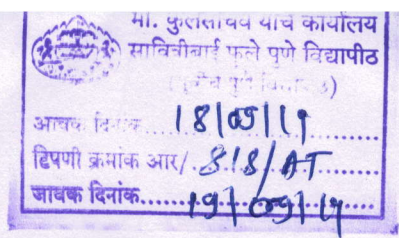 मा. कुलसचिव यांचे कार्यालय
सावित्रीबाई फुले पुणे विद्यापीठ
(पूर्वीचे पुणे विद्यापीठ)
आवक दिनांक 18/09/19
टिपणी क्रमांक आर/ 818/AT
जावक दिनांक 19/09/19